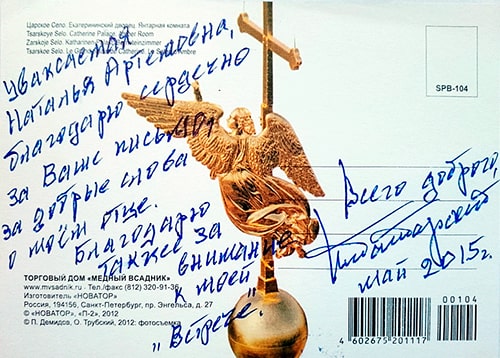 Царское Село. Екатерининский дворец. Янтарная комната
Tsarskoye Selo. Catherine Palace. Amber Room
Zarskoje Selo. Katharinenpalast. Bernsteinzimmer
Tsarskoe Selo. Le Grand Palais de Catherine. Le Salon d'Ambre
SPB-104
Уважаемая
Наталья Артемовна,
благодарю сердечно
за Ваше письмо,
за добрые слова
о моём отце.
Благодарю
также за
внимание
к моей
„Встрече".
Всего доброго,
май 2015г.
ТОРГОВЫЙ ДОМ «МЕДНЫЙ ВСАДНИК»
www.mvsadnik.ru - Тел./факс (812) 320-91-36
Изготовитель «НОВАТОР»
Россия, 194156, Санкт-Петербург, пр. Энгельса, д. 27
© «НОВАТОР», «П-2», 2012
© П. Демидов, О. Трубский, 2012: фотосъемка
00104
4 602675 201117